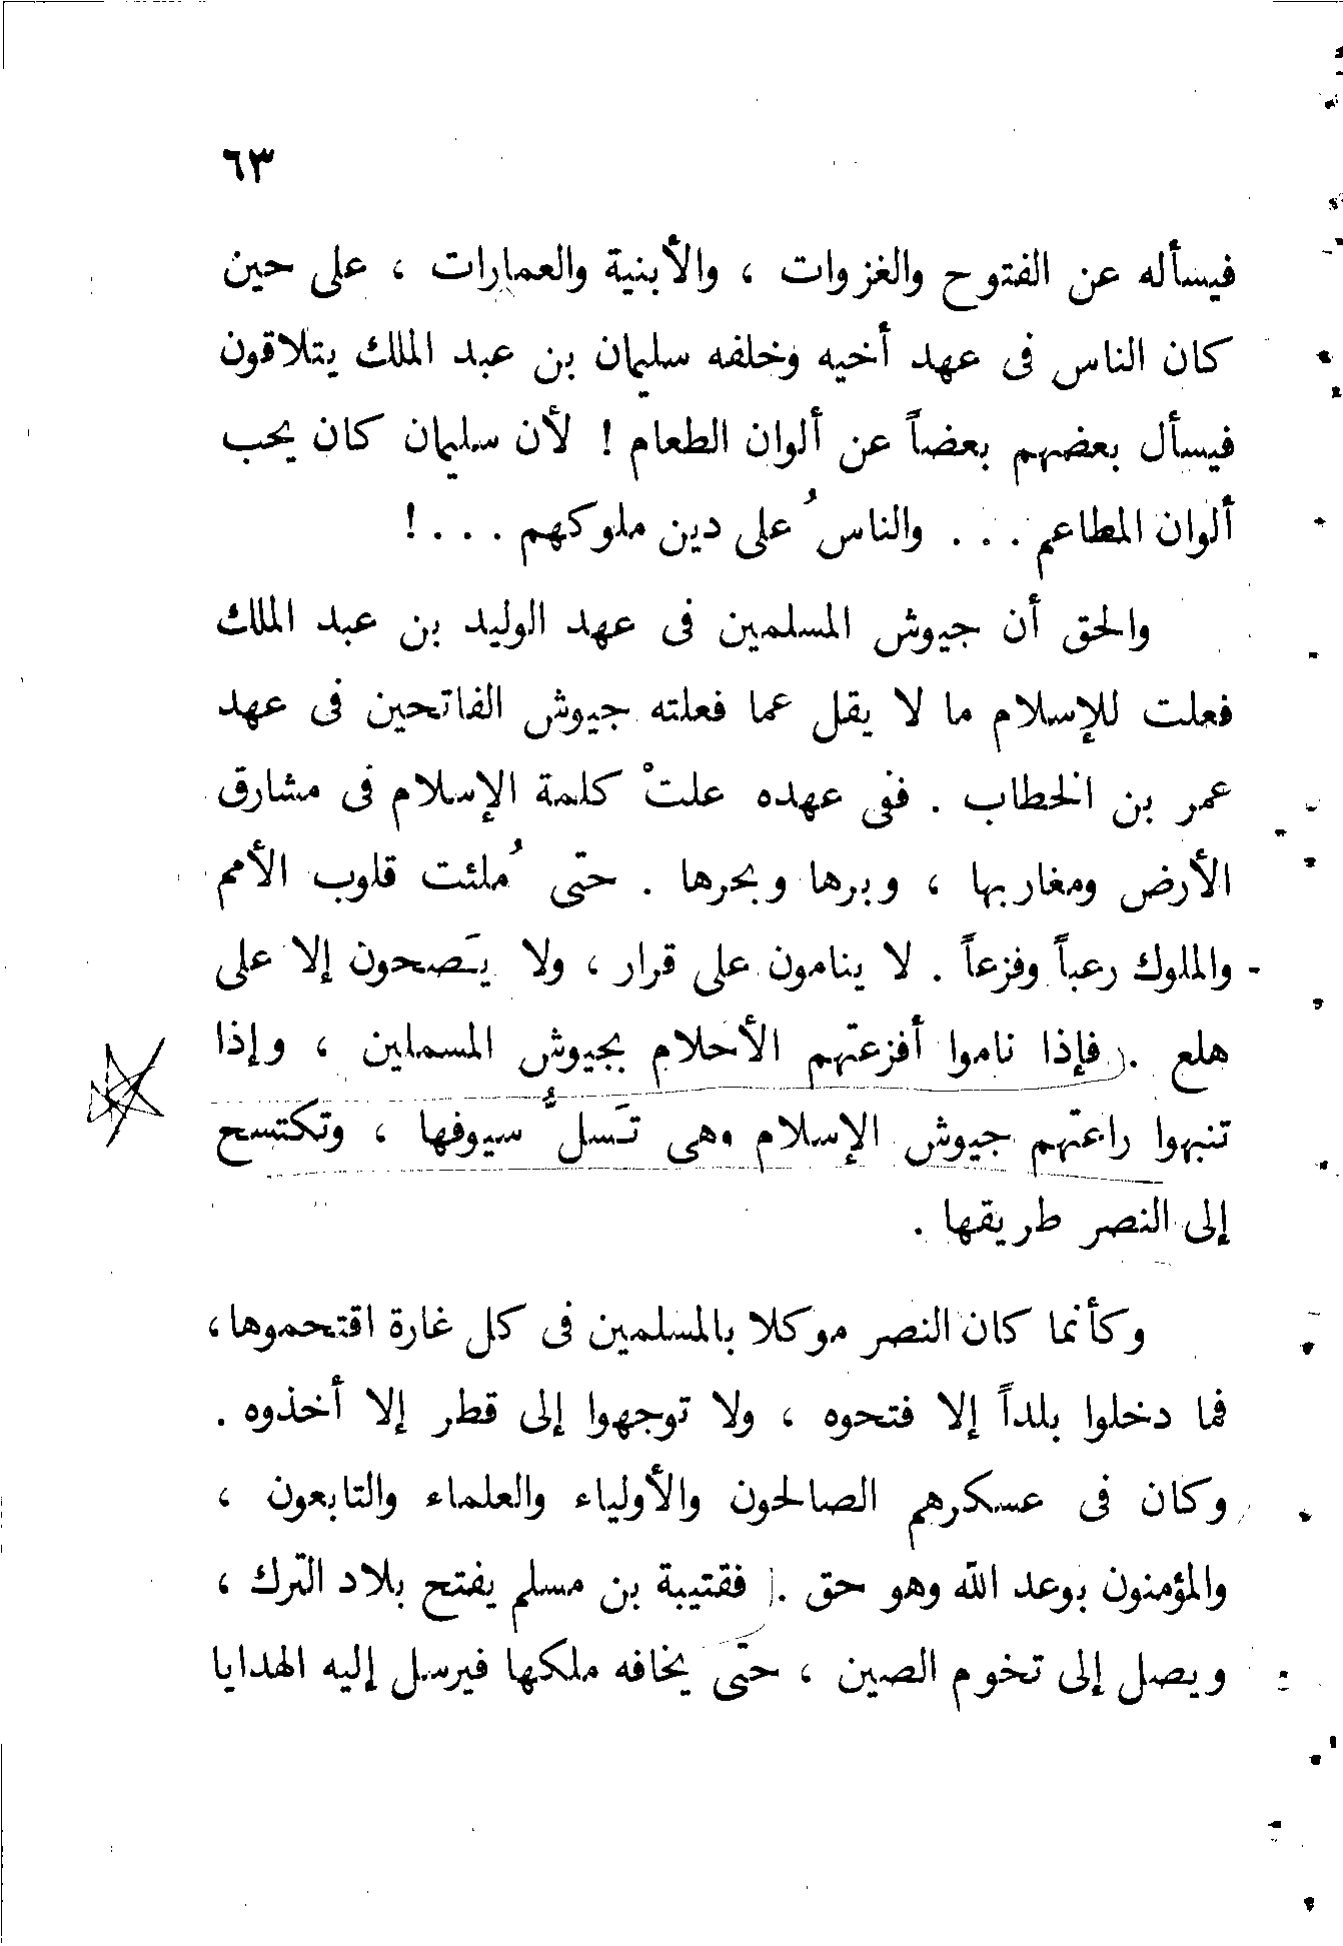 ٦٣
فيسأله عن الفتوح والغزوات ، والأبنية والعمارات ، على حين
كان الناس فى عهد أخيه وخلفه سليمان بن عبد الملك يتلاقون
فيسأل بعضهم بعضاً عن ألوان الطعام ! لأن سليمان كان يحب
ألوان المطاعم . . . والناسُ على دين ملوكهم . . . !
والحق أن جيوش المسلمين فى عهد الوليد بن عبد الملك
فعلت للإسلام ما لا يقل عما فعلته جيوش الفاتحين فى عهد
عمر بن الخطاب . ففى عهده علتْ كلمة الإسلام فى مشارق
الأرض ومغاربها ، وبرها وبحرها . حتى مُلئت قلوب الأمم
والملوك رعباً وفزعاً . لا ينامون على قرار ، ولا يَصحون إلا على
هلع . فإذا ناموا أفزعتهم الأحلام بجيوش المسملين ، وإذا
تنبهوا راعتهم جيوش الإسلام وهى تَسلُّ سيوفها ، وتكتسح
إلى النصر طريقها .
وكأنما كان النصر موكلا بالمسلمين فى كل غارة اقتحموها ،
فما دخلوا بلداً إلا فتحوه ، ولا توجهوا إلى قطر إلا أخذوه .
وكان فى عسكرهم الصالحون والأولياء والعلماء والتابعون ،
والمؤمنون بوعد الله وهو حق . فقتيبة بن مسلم يفتح بلاد الترك ،
ويصل إلى تخوم الصين ، حتى يخافه ملكها فيرسل إليه الهدايا